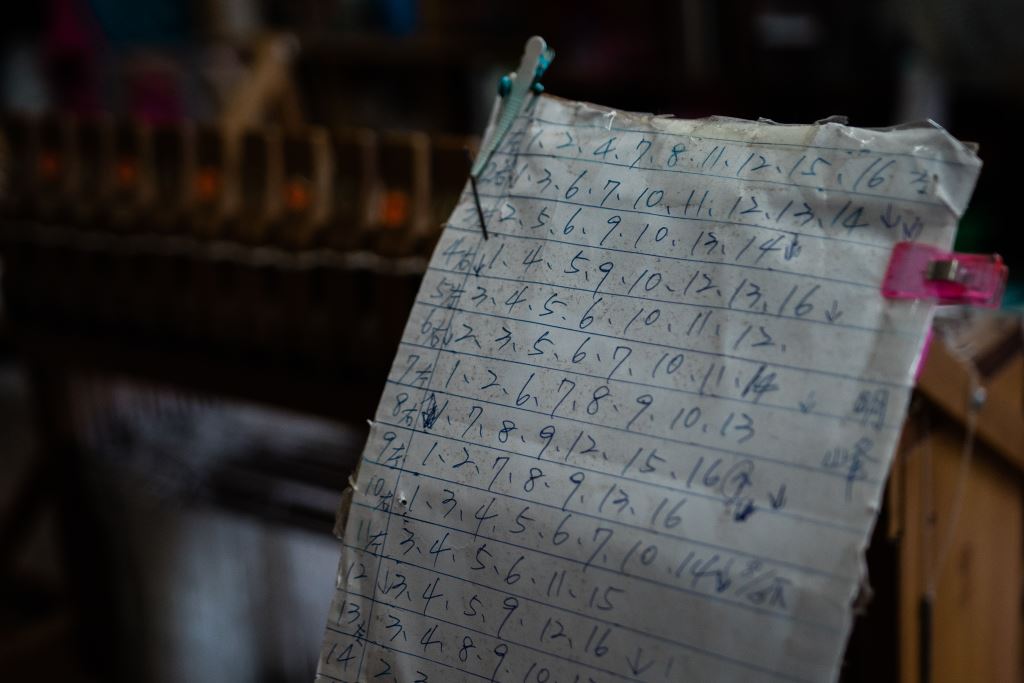 1左 1、2、4、7、8、11、12、15、16
2右 1、3、6、7、10、11、12、13、14 ↓
左 2、5、6、9、10、13、14
4右↓ 1、4、5、9、10、12、13、16 ↓
5左 3、4、5、6、10、11、12、
6右 2、3、5、6、7、10、11、14
7左 1、2、6、7、8、9、10、13 ↓ 明
8右 1、7、8、9、12、15、16 ↓
9左 1、2、7、8、9、13、16
10右 1、3、4、5、6、7、10、14
11左 3、4、5、6、11、15
12 ↓ 3、4、5、9、12、16 ↓
13左 3、4、8、9、10、
14 2